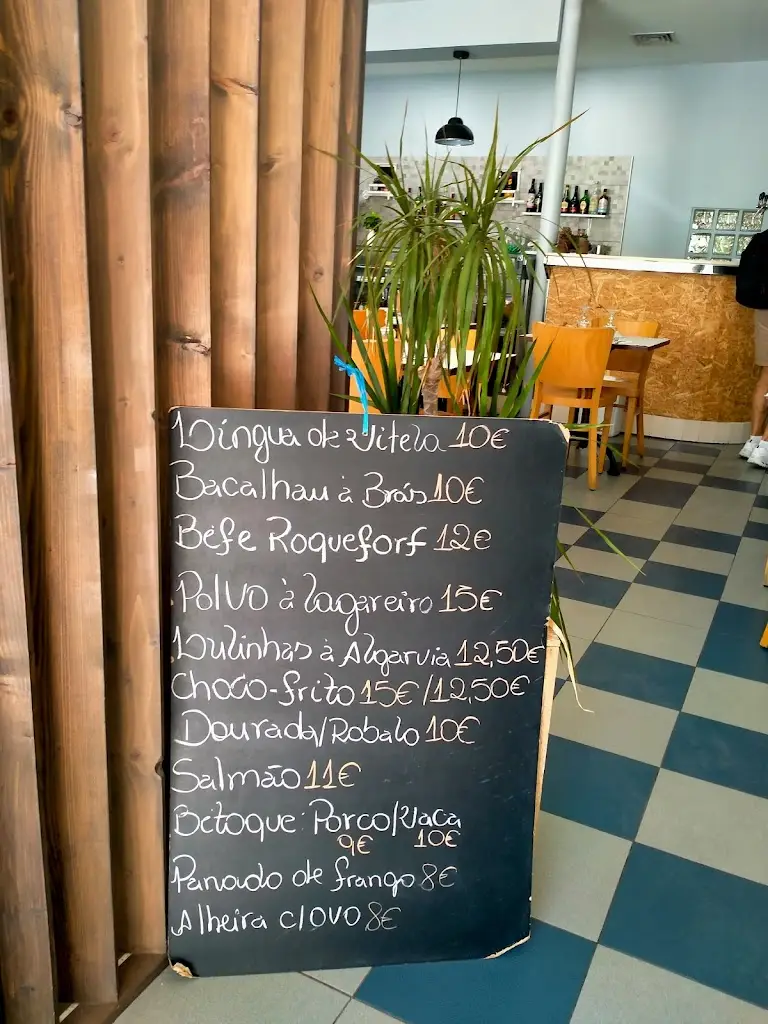 Língua de Vitela 10€
Bacalhau à Brás 10€
Bife Roquefort 12€
Polvo à lagareiro 15€
Lulinhas à Algarvia 12,50€
Choco-frito 15€/12,50€
Dourada/Robalo 10€
Salmão 11€
Bitoque: Porco/Vaca
9€ 10€
Panado de frango 8€
Alheira c/ovo 8€